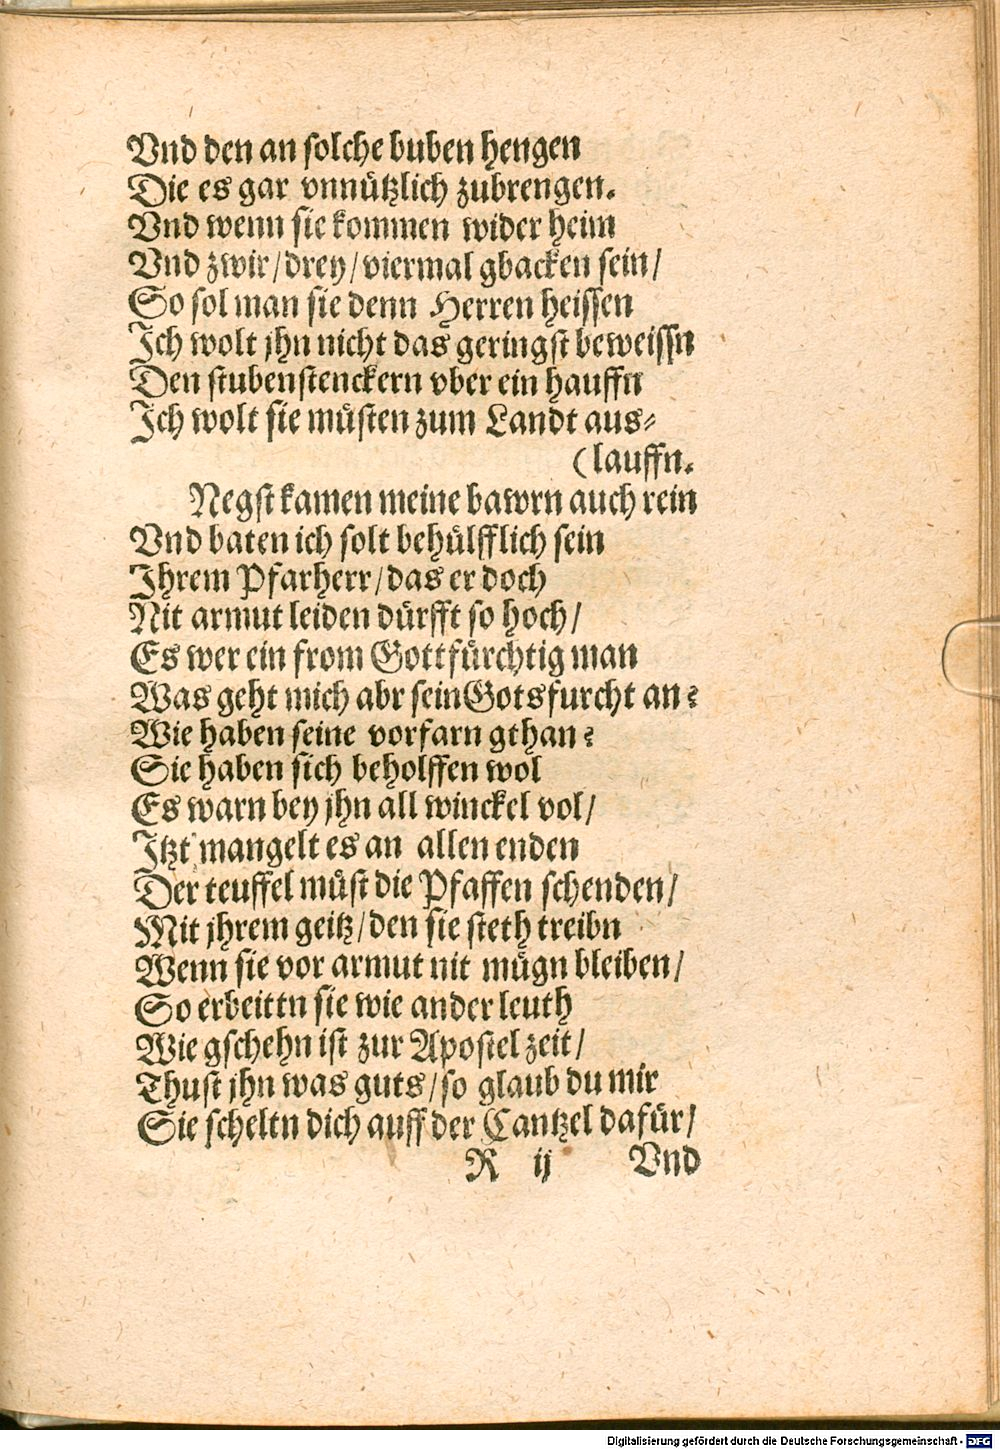 Vnd den an solche buben hengen
Die es gar vnnützlich zubrengen.
Vnd wenn sie kommen wider heim
Vnd zwir/drey/viermal gbacken sein/
So sol man sie denn Herren heissen
Ich wolt jhn nicht das geringst beweissn
Den stubenstenckern vber ein hauffn
Ich wolt sie müsten zum Landt aus⸗
(lauffn.
Negst kamen meine bawrn auch rein
Vnd baten ich solt behülfflich sein
Ihrem Pfarherr/das er doch
Nit armut leiden dürfft so hoch/
Es wer ein from Gottfürchtig man
Was geht mich abr sein Gotsfurcht an?
Wie haben seine vorfarn gthan?
Sie haben sich beholffen wol
Es warn bey jhn all winckel vol/
Itzt mangelt es an allen enden
Der teuffel müst die Pfaffen schenden/
Mit jhrem geitz/den sie steth treibn
Wenn sie vor armut nit mügn bleiben/
So erbeittn sie wie ander leuth
Wie gschehn ist zur Apostel zeit/
Thust jhn was guts/so glaub du mir
Sie scheltn dich auff der Cantzel dafür/
R ij Vnd
Digitalisierung gefördert durch die Deutsche Forschungsgemeinschaft - DFG